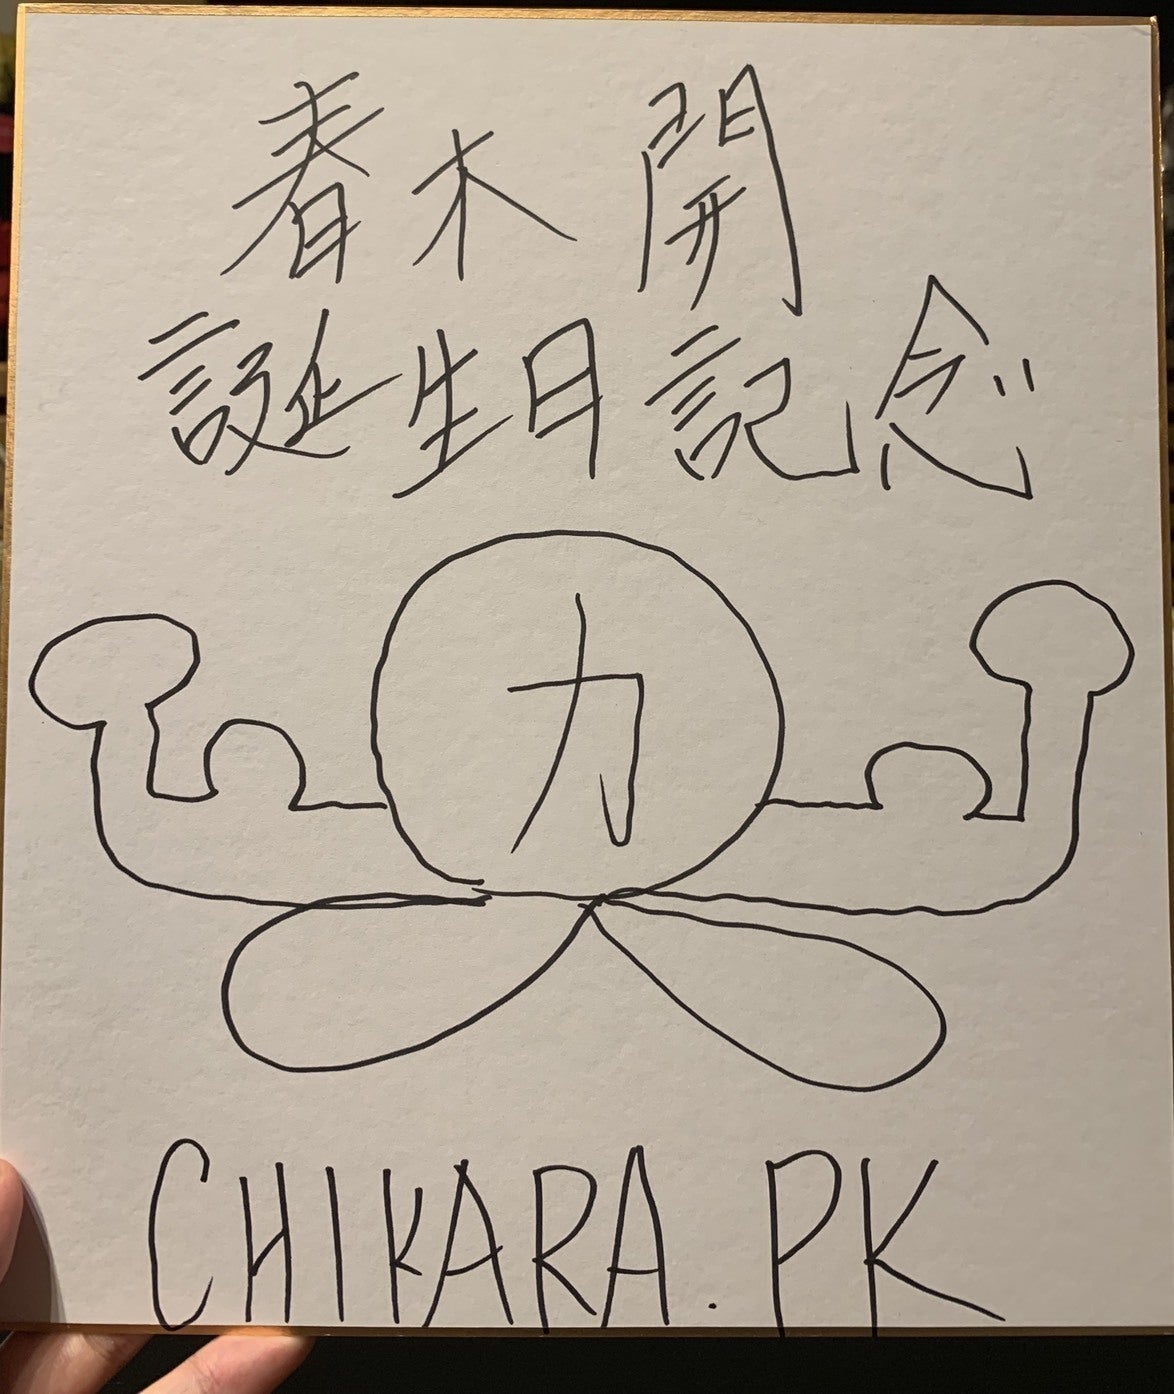 春木開
誕生日記念
力
CHIKARA.PK